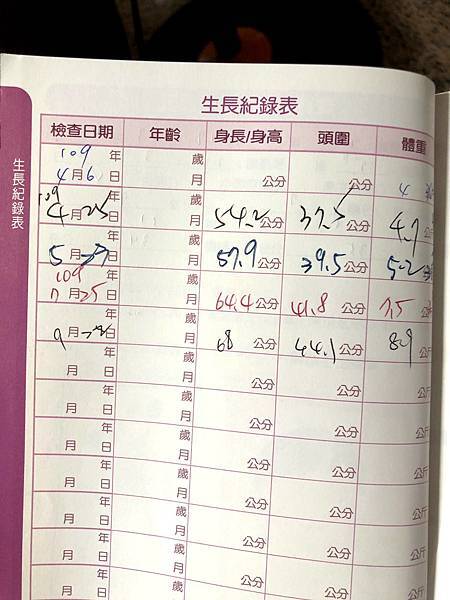 生長紀錄表
生長紀錄表
檢查日期 年齡 身長/身高 頭圍 體重
109 年 歲
4月6日 月 公分 公分 4
109 年 歲
4月25日 月 54.2公分 37.5公分 4.7
年 歲
5月 日 月 57.9公分 39.5公分 5.2
109 年 歲
7月25日 月 64.4公分 41.8公分 7.5
年 歲
9月 日 月 68公分 44.1公分 8.9公斤
年 歲
月 日 月 公分 公分 公斤
年 歲
月 日 月 公分 公分 公斤
年 歲
月 日 月 公分 公分 公斤
年 歲
月 日 月 公分 公分 公斤
年 歲
月 日 月 公分 公分 公斤
年 歲
月 日 月 公分 公分 公斤
年 歲
月 日 月 公分 公分 公斤